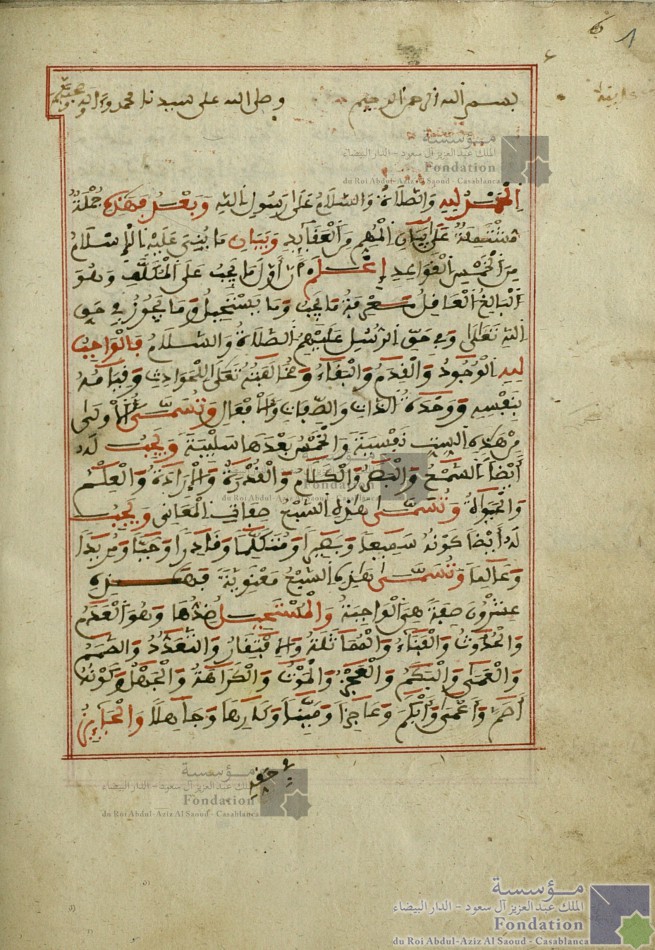 6 1
بسم الله الرحمن الرحيم وصلى الله على سيدنا محمد وءاله وصحبه
الحمد لله والصلاة والسلام على رسول الله وبعد فهذه جملة
مشتملة على بيان المهم من العقايد وبيان ما يبنى عليه الإسلام
من الخمس القواعد اعلم أن أول ما يجب على المكلف وهو
البالغ العاقل معرفة ما يجب وما يستحيل وما يجوز في حق
الله تعلى وفي حق الرسل عليهم الصلاة والسلام فالواجب
لله الوجود والقدم والبقاء ومخالفته تعلى للحوادث وقيامه
بنفسه ووحدة الذات والصفات والأفعال وتسمى الأولى
من هذه الست نفسية والخمس بعدها سلبية ويجب له
أيضا السمع والبصر والكلام والقدرة والإرادة والعلم
والحيوة وتسمى هذه السبع صفات المعاني ويجب
له أيضا كونه سميعا وبصيرا ومتكلما وقادرا وحيا ومريدا
وعالما وتسمى هذه السبع معنوية فهذه
عشرون صفة هي الواجبة والمستحيل ضدها وهو العدم
والحدوث والفناء والمماثلة والافتقار والتعدد والصمم
والعمى والبكم والعجز والموت والكراهة والجهل وكونه
أصم وأعمى وأبكم وعاجزا وميتا وكارها وجاهلا والجايز
في حقه
مؤسسة
الملك عبد العزيز آل سعود - الدار البيضاء
Fondation
du Roi Abdul-Aziz Al Saoud - Casablanca